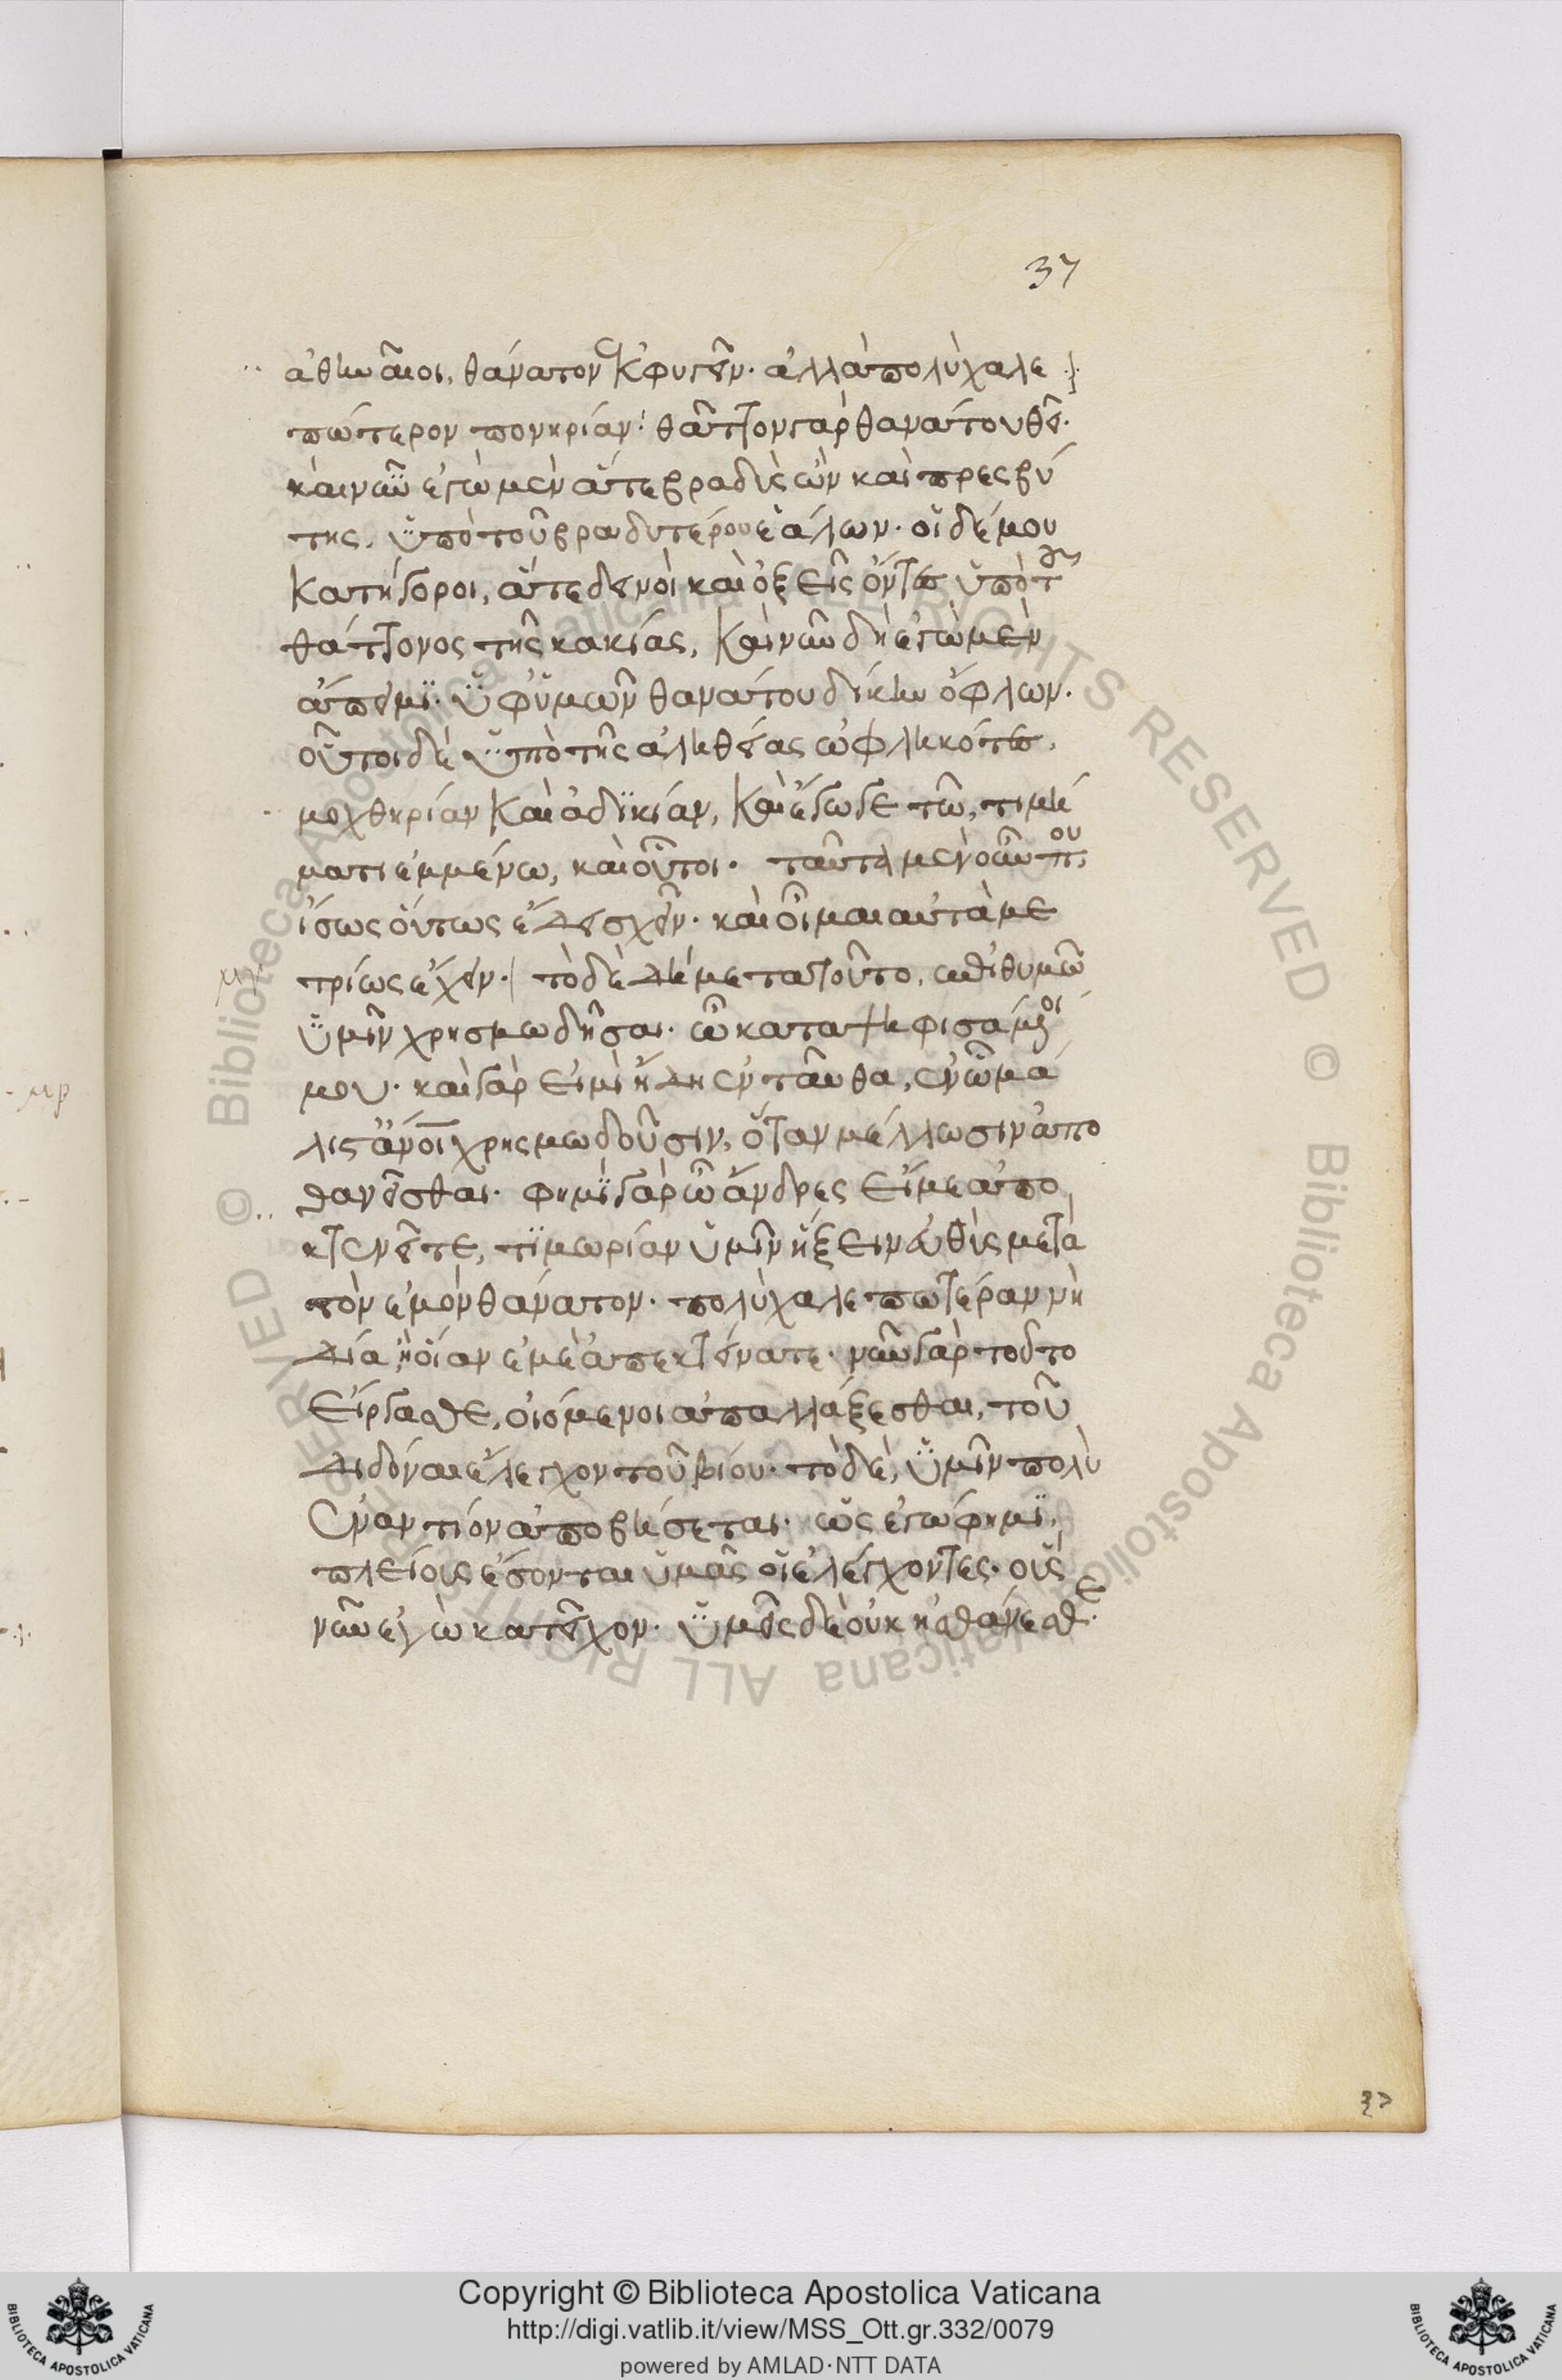 37
ἀθηναῖοι, θάνατον ἐκφυγεῖν. ἀλλὰ πολὺ χαλε
πώτερον πονηρίαν· θᾶττον γὰρ θανάτου θεῖ.
καὶ νῦν ἐγὼ μὲν ἅτε βραδὺς ὢν καὶ πρεσβύ
της, ὑπὸ τοῦ βραδυτέρου ἑάλων. οἱ δέ μου
κατήγοροι, ἅτε δεινοὶ καὶ ὀξεῖς ὄντες ὑπὸ τοῦ
θάττονος τῆς κακίας, καὶ νῦν δὴ ἐγὼ μὲν
ἄπειμι ὑφ' ὑμῶν θανάτου δίκην ὄφλων.
οὗτοι δὲ ὑπὸ τῆς ἀληθείας ὠφληκότες,
μοχθηρίαν καὶ ἀδικίαν, καὶ ἔγωγε τῶ, τιμή
ματι ἐμμένω, καὶ οὗτοι. ταῦτα μὲν οὖν που,
ἴσως οὕτως ἔδει σχεῖν. καὶ οἶμαι αὐτὰ με
τρίως ἔχειν. τὸ δὲ δὴ μετὰ τοῦτο, ἐπιθυμῶ
ὑμῖν χρησμωδῆσαι. ὦ καταψηφισάμενοί
μου. καὶ γάρ εἰμι ἤδη ἐνταῦθα, ἐν ὧ μά
λιστ' ἄνοι χρησμωδοῦσιν, ὅταν μέλλωσιν ἀπο
θανεῖσθαι. φημὶ γὰρ ὦ ἄνδρες εἴ με ἀπο
κτενεῖτε, τιμωρίαν ὑμῖν ἥξειν εὐθὺς μετὰ
τὸν ἐμὸν θάνατον. πολὺ χαλεπωτέραν νὴ
Δία, ἢ οἵαν ἐμὲ ἀπεκτείνατε. νῦν γὰρ τοῦτο
εἴργασθε, οἰόμενοι ἀπαλλάξεσθαι, τοῦ
διδόναι ἔλεγχον τοῦ βίου. τὸ δὲ, ὑμῖν πολὺ
ἐναντίον ἀποβήσεται. ὡς ἐγώ φημι,
πλείους ἔσονται ὑμᾶς οἱ ἐλέγχοντες. οὓς
νῦν ἐγὼ κατεῖχον. ὑμεῖς δὲ οὐκ ἠσθάνεσθε.
Copyright © Biblioteca Apostolica Vaticana
http://digi.vatlib.it/view/MSS_Ott.gr.332/0079
powered by AMLAD·NTT DATA